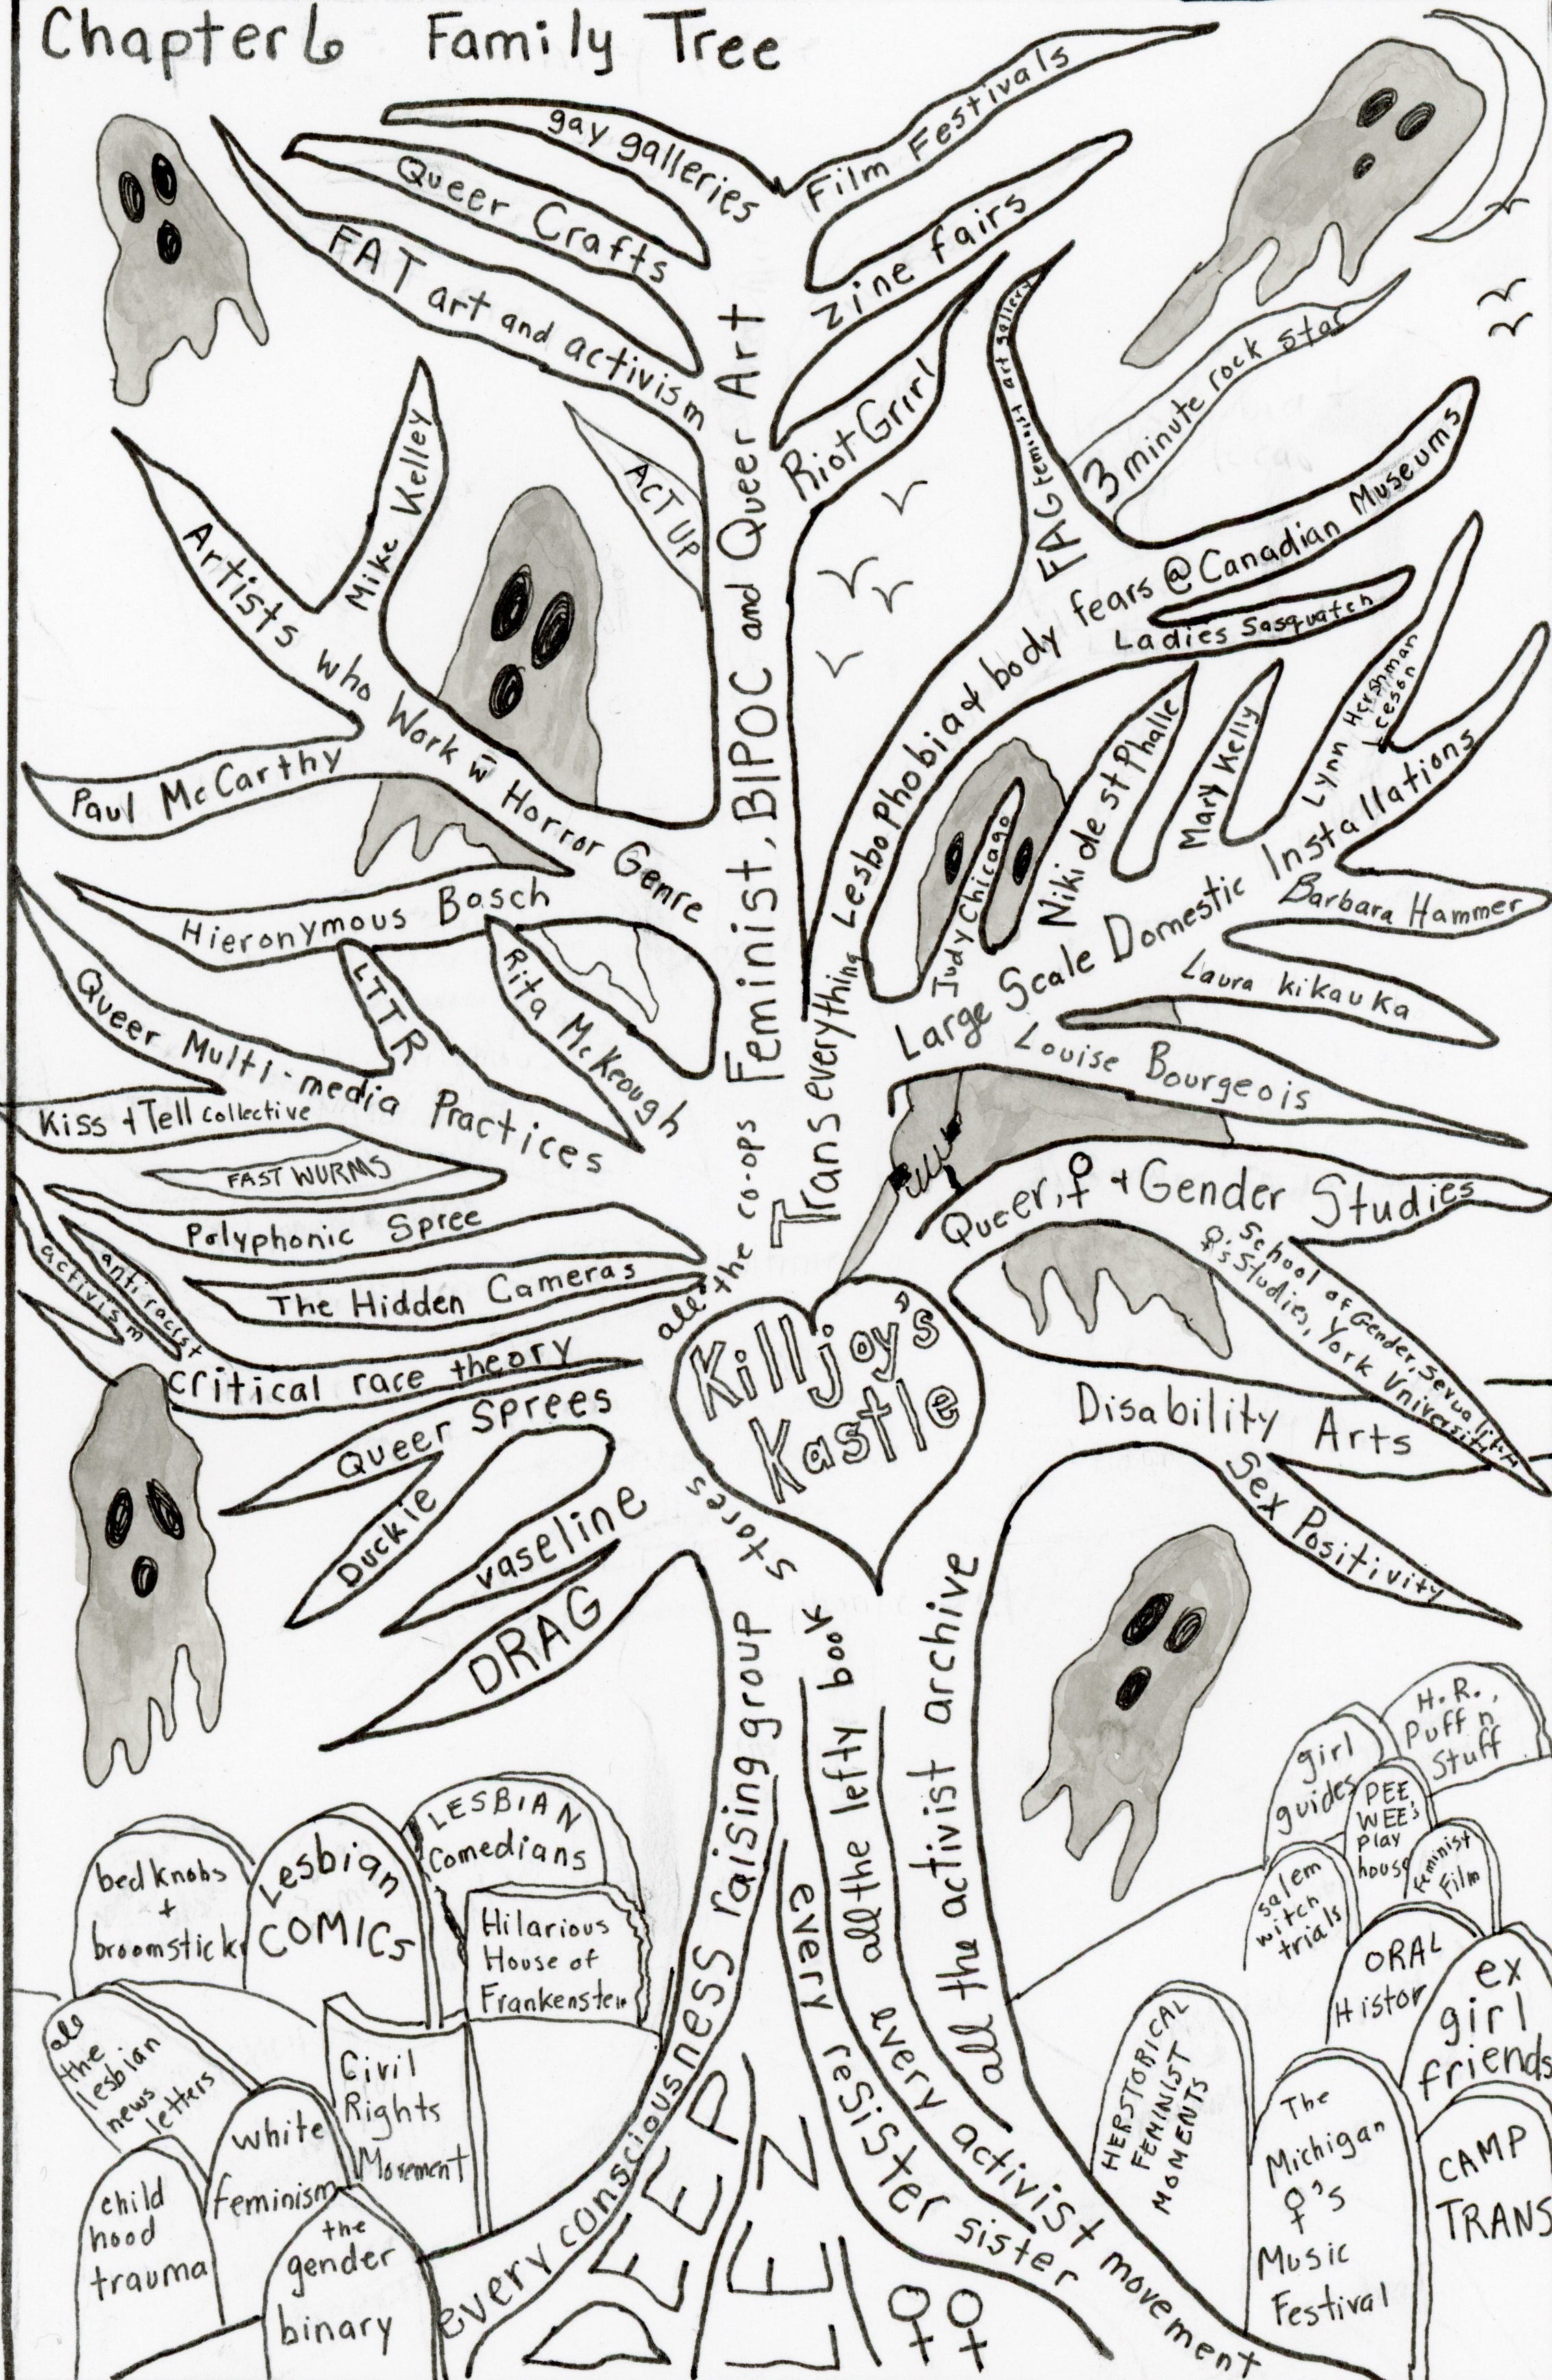 Chapter 6 Family Tree
gay galleries
Film Festivals
Queer Crafts
zine fairs
FAT art and activism
Riot Grrrl
FAG feminist art gallery
3 minute rock star
ACT UP
Mike Kelley
Artists who Work w̄ Horror Genre
Paul McCarthy
Hieronymous Bosch
Feminist, BIPOC and Queer Art
Lesbophobia & body fears @ Canadian Museums
Ladies Sasquatch
Judy Chicago
Niki de st Phalle
Mary Kelly
Lynn Hershman
Leeson
Large Scale Domestic Installations
Barbara Hammer
Laura Kikauka
Louise Bourgeois
Trans everything
Queer Multi-media Practices
LTTR
Rita McKeough
Kiss + Tell collective
FASTWURMS
Polyphonic Spree
The Hidden Cameras
anti racist
activism
critical race theory
Queer Sprees
Duckie
vaseline
DRAG
Queer, ♀ + Gender Studies
School of Gender, Sexuality +
♀'s Studies, York University
Disability Arts
Sex Positivity
Killjoy's
Kastle
all the co-ops
all the lefty book stores
all the activist archive
every consciousness raising group
every resister sister
every activist movement
DEEP
LEZ
♀♀
bedknobs
+
broomsticks
Lesbian
COMICS
LESBIAN
Comedians
Hilarious
House of
Frankenstein
all
the
lesbian
news
letters
Civil
Rights
Movement
white
feminism
child
hood
trauma
the
gender
binary
girl
guides
H.R.,
Puff n
Stuff
PEE
WEE'S
play
house
feminist
Film
salem
witch
trials
ORAL
Histor
ex
girl
friends
HERSTORICAL
FEMINIST
MOMENTS
The
Michigan
♀'s
Music
Festival
CAMP
TRANS